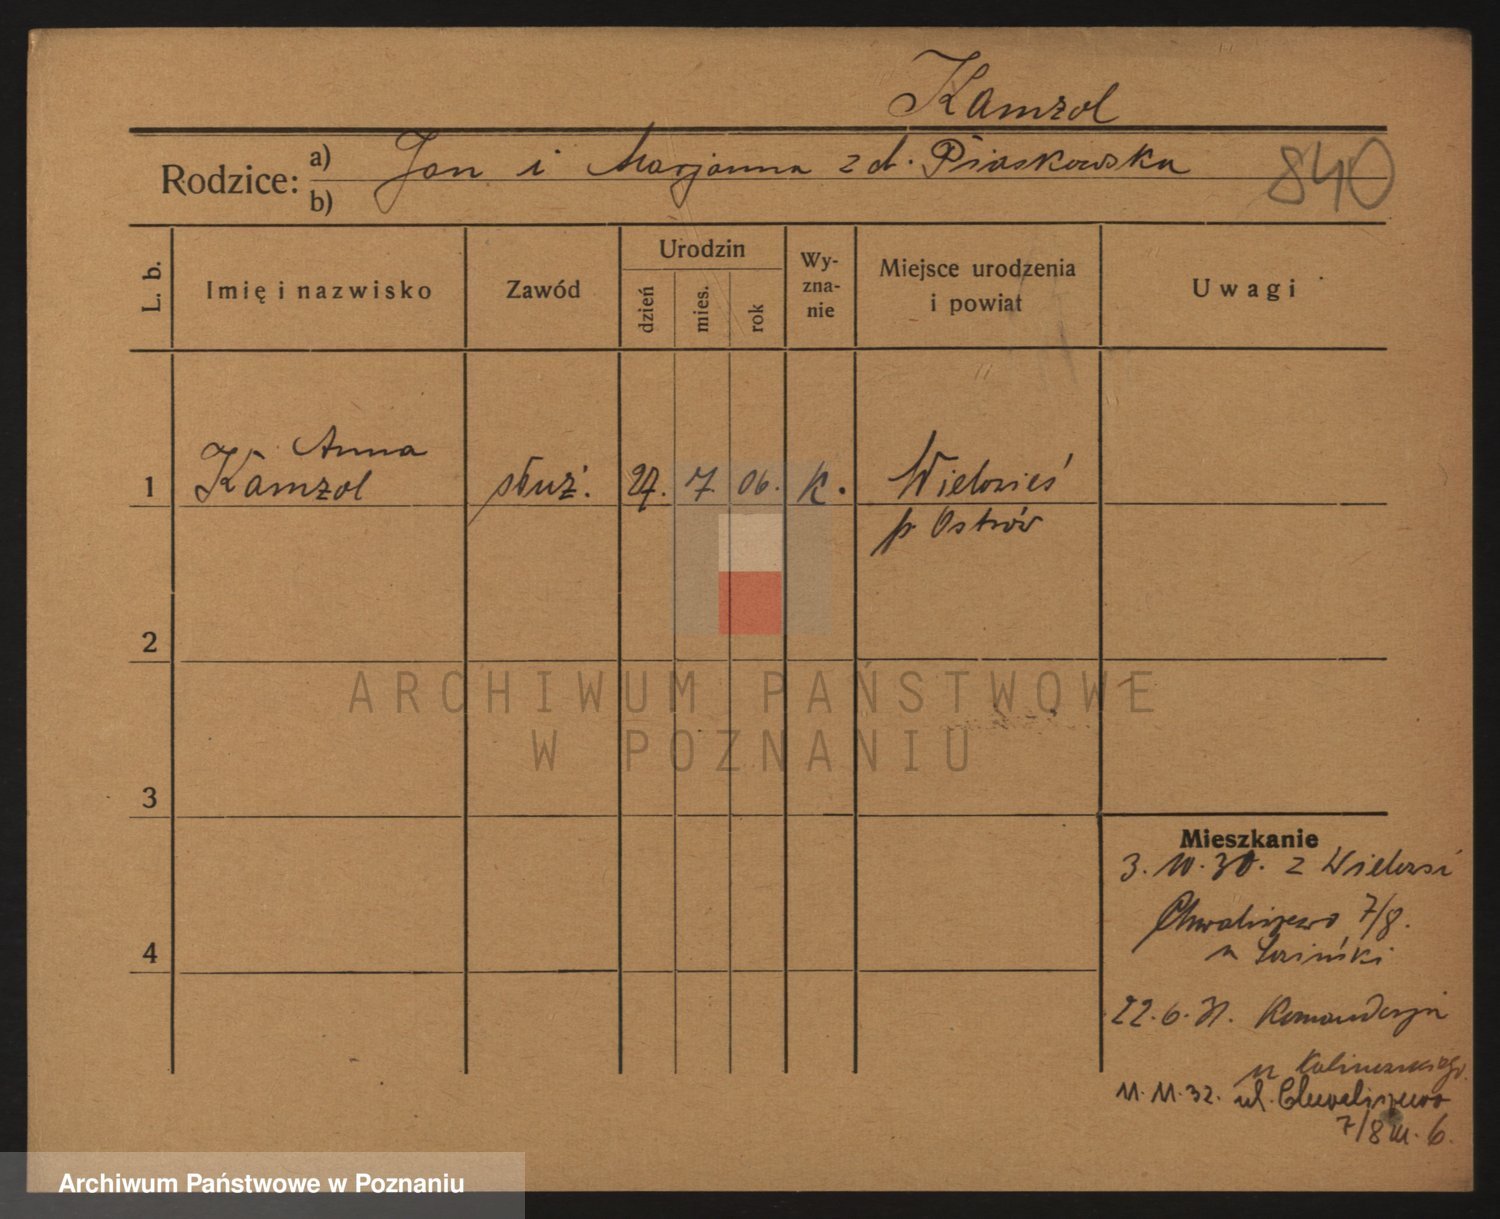 Kamzol
Rodzice: a) Jan i Marjanna z d. Piaskowska
b)
840
L. b.
Imię i nazwisko
Zawód
Urodzin
dzień
mies.
rok
Wy-
zna-
nie
Miejsce urodzenia
i powiat
Uwagi
Anna
1 Kamzol służ. 27. 7 06. k. Wielowieś
p Ostrów
2
3
4
ARCHIWUM PAŃSTWOWE
W POZNANIU
Mieszkanie
3.10.30. z Wielowsi
Chwaliszewo 7/8.
u
22.6.31. Komandorja
u Kalinowskiego
11.11.32. ul. Chwaliszewo
7/8 m. 6.
Archiwum Państwowe w Poznaniu